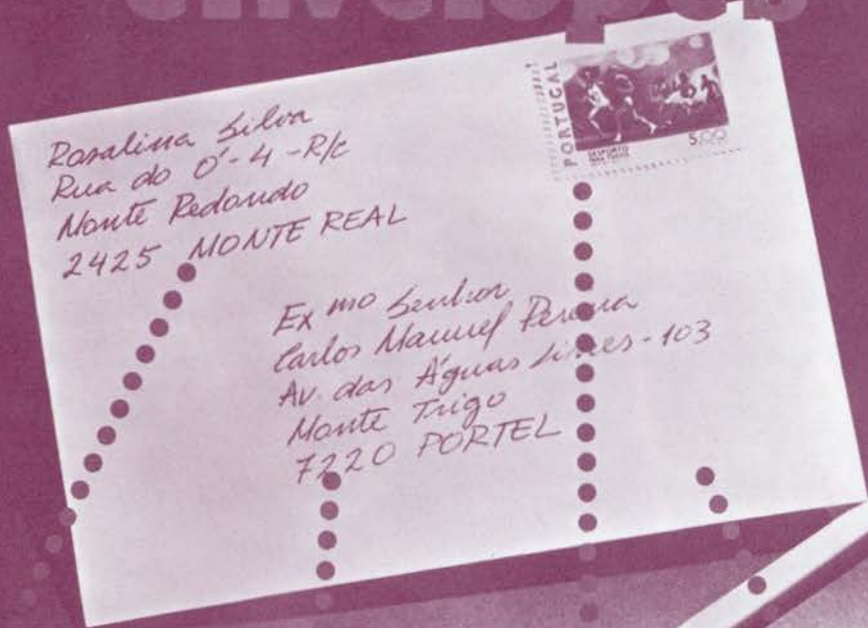 envelopes
Rosalina Silva
Rua do O'-4-R/c
Monte Redondo
2425 MONTE REAL
PORTUGAL
DESPORTO
PARA TODOS
5.00
Ex mo Senhor
Carlos Manuel Pereira
Av. das Águas Livres-103
Monte Trigo
7220 PORTEL